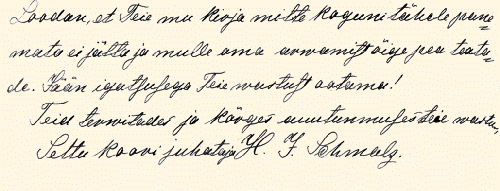 Loodan, et Teie mu kirja mitte koguni tähele pane=
mata ei jätta ja mulle oma arwamist õige pea teata=
de. Jään igatsusega Teie wastust ootama!
Teid terwitades ja kõrges auutunnuses teie wastu,
Settu koori juhataja H. J. Schmalz.